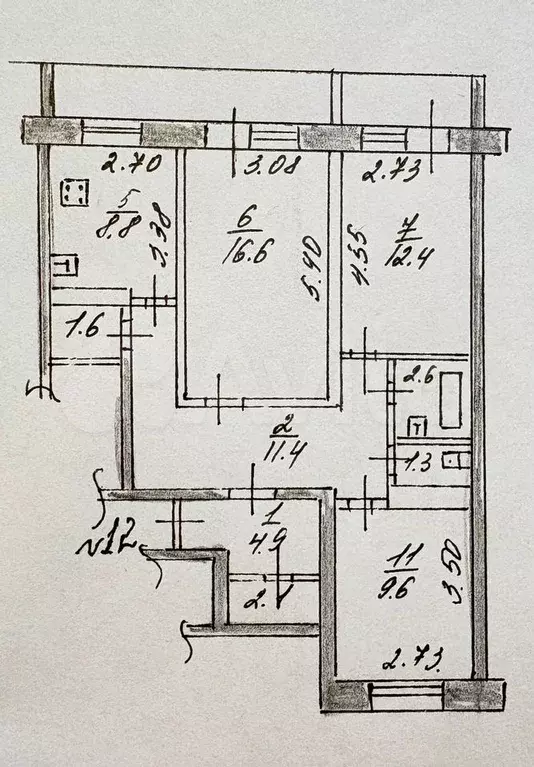 2.70 3.08 2.73
5
8.8
3.38
6
16.6
5.40
4.55
7
12.4
1.6
2.6
2
11.4
1.3
1
4.9
N12
11
9.6
3.50
2.73